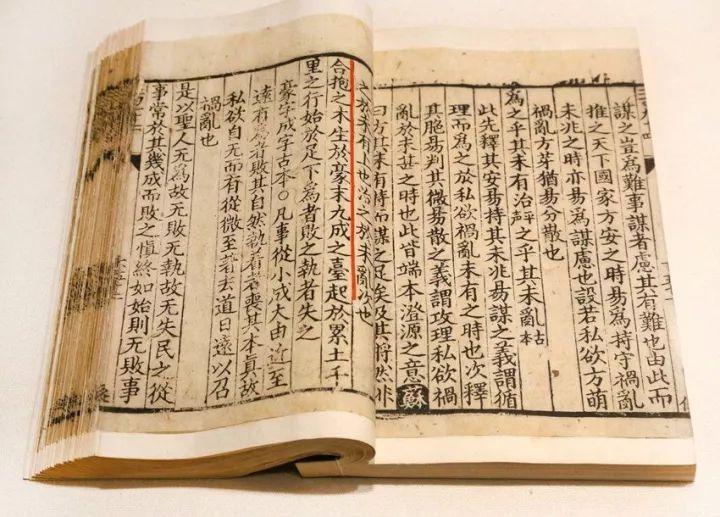 謀之豈為難事謀者慮其有難也由此而
推之天下國家方安之時易為持守禍亂
未兆之時亦易為謀慮也設若私欲方萌
禍亂方芽猶易分散也
為之乎其未有治平声之乎其未亂古本
此先釋其安易持其未兆易謀之義謂循
理而為之於私欲禍亂未有之時也次釋
其脆易判其微易散之義謂攻理私欲禍
亂於未甚之時也此皆端本澄源之意蘇
曰方其未有持而謀之足矣及其將然非
之於未有上也治之於未亂次也
合抱之木生於豪末九成之臺起於累土千
里之行始於足下為者敗之執者失之
豪字成字古本○凡事從小成大由近至
遠有為者敗其自然執著者喪其本真故
私欲自无而有從微至著去道日遠以召
禍亂也
是以聖人无為故无敗无執故无失民之從
事常於其幾成而敗之慎終如始則无敗事